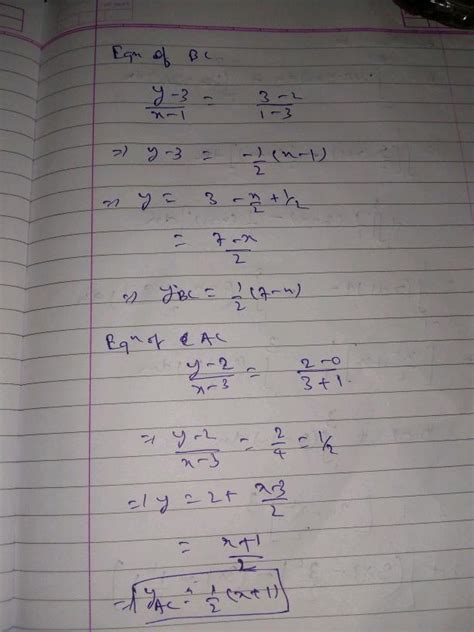 Eqn of BC
y-3/x-1 = 3-2/1-3
⇒ y-3 = -1/2 (x-1)
⇒ y = 3 - x/2 + 1/2
= 7-x/2
⇒ yBC = 1/2 (7-x)
Eqn of AC
y-2/x-3 = 2-0/3+1
⇒ y-2/x-3 = 2/4 = 1/2
⇒ y = 2+ x-3/2
= x+1/2
⇒ yAC = 1/2 (x+1)